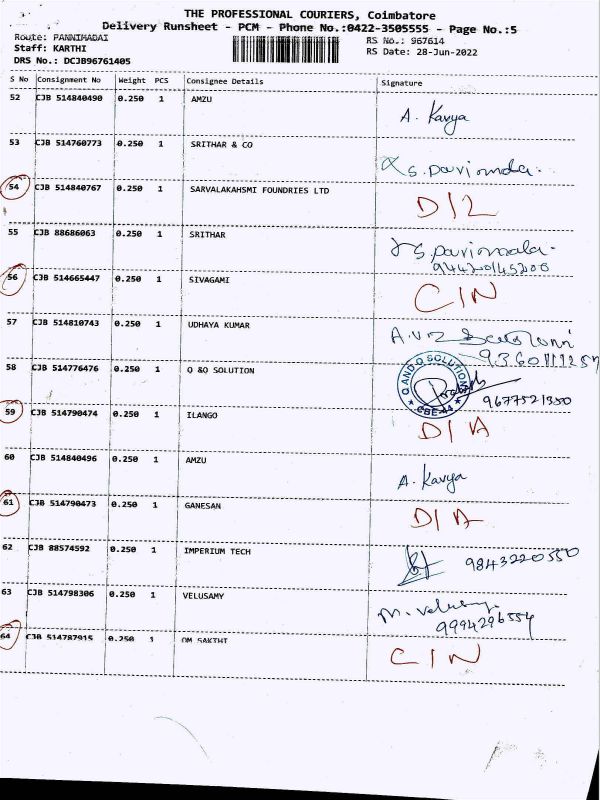 THE PROFESSIONAL COURIERS, Coimbatore
Delivery Runsheet - PCM - Phone No.:0422-3505555 - Page No.:5
Route: PANNIMADAI
RS No.: 967614
Staff: KARTHI
RS Date: 28-Jun-2022
DRS No.: DCJB96761405
S No Consignment No Weight PCS Consignee Details Signature
52 CJB 514840490 0.250 1 AMZU A. Kavya
53 CJB 514760773 0.250 1 SRITHAR & CO S. parimala.
54 CJB 514840767 0.250 1 SARVALAKAHSMI FOUNDRIES LTD D/L
55 CJB 88686063 0.250 1 SRITHAR S. parimala.
56 CJB 514665447 0.250 1 SIVAGAMI C/N
57 CJB 514810743 0.250 1 UDHAYA KUMAR A.V.
58 CJB 514776476 0.250 1 Q &Q SOLUTION Q AND Q SOLUTION CBE-44
9677521350
59 CJB 514790474 0.250 1 ILANGO D/A
60 CJB 514840496 0.250 1 AMZU A. Kavya
61 CJB 514790473 0.250 1 GANESAN D/A
62 CJB 88574592 0.250 1 IMPERIUM TECH 9843220550
63 CJB 514798306 0.250 1 VELUSAMY M. Velusamy
9994296554
64 CJB 514787915 0.250 1 OM SAKTHI C/N